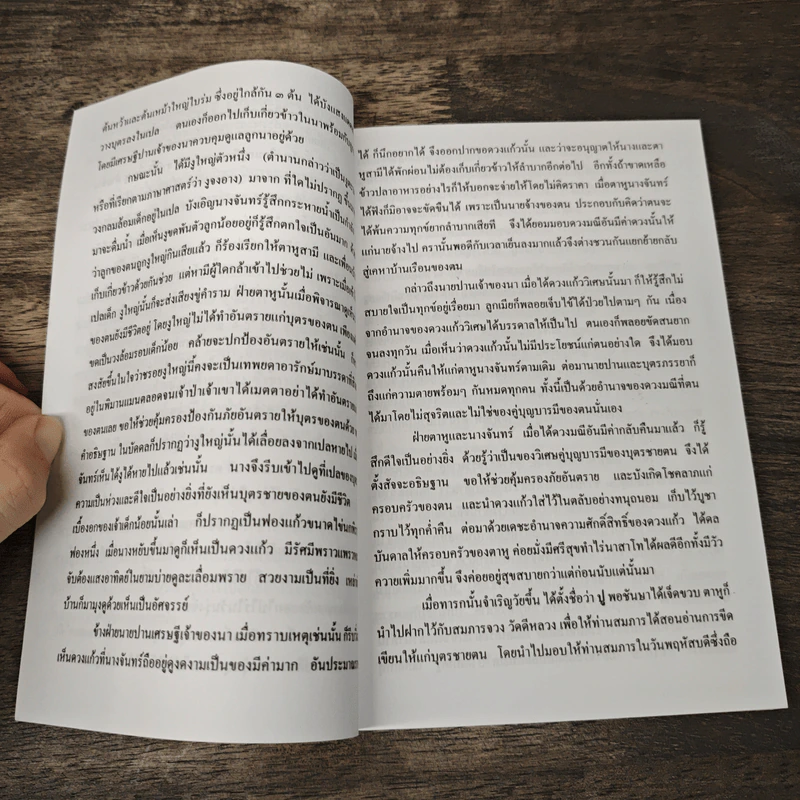 ต้นหว้าและต้นเหม้าใหญ่ใบร่ม ซึ่งอยู่ใกล้กัน ๓ ต้น ได้บังแสง
วางบุตรลงในเปล ตนเองก็ออกไปเก็บเกี่ยวข้าวในนาพร้อมกับ
โดยมีเศรษฐีปานเจ้าของนาควบคุมดูแลลูกนาอยู่ด้วย
กษณะนั้น ได้มีงูใหญ่ตัวหนึ่ง (ตำนานกล่าวว่าเป็นงู
หรือที่เรียกตามภาษาศาสตร์ว่า งูจงอาง) มาจาก ที่ใดไม่ปรากฏ
วงกลมล้อมเด็กอยู่ในเปล บังเอิญนางจันทร์รู้สึกกระหายน้ำเป็นกำลัง
มาจะดื่มน้ำ เมื่อเห็นงูขดพันตัวลูกน้อยอยู่ก็รู้สึกตกใจเป็นอันมาก
ว่าลูกของตนถูกงูใหญ่กินเสียแล้ว ก็ร้องเรียกให้ตาหูสามี และเพื่อน
เก็บเกี่ยวข้าวด้วยกันช่วย แต่หามีผู้ใดกล้าเข้าไปช่วยไม่ เพราะเมื่อ
เปลเด็ก งูใหญ่นั้นก็จะส่งเสียงขู่คำราม ฝ่ายตาหูนั้นเมื่อพิจารณาดู
ของตนยังมีชีวิตอยู่ โดยงูใหญ่ไม่ได้ทำอันตรายแก่บุตรของตน
ขดเป็นวงล้อมรอบเด็กน้อย คล้ายจะปกป้องอันตรายให้เช่นนั้น
สงสัยขึ้นในใจว่าชรอยงูใหญ่นี้คงจะเป็นเทพยดาอารักษ์มาบรรดา
อยู่ในพิมานแมนตลอดจนเจ้าป่าเจ้าเขาได้เมตตาอย่าได้ทำอันตราย
ของตนเลย ขอให้ช่วยคุ้มครองป้องกันภัยอันตรายให้บุตรของตนด้วย
คำอธิษฐาน ในบัดดลก็ปรากฏว่างูใหญ่นั้นได้เลื่อยลงจากเปลหายไป
จันทร์เห็นได้งูได้หายไปแล้วเช่นนั้น นางจึงรีบเข้าไปดูที่เปลของ
ความเป็นห่วงและดีใจเป็นอย่างยิ่งที่ยังเห็นบุตรชายของตนยังมีชีวิต
เบื้องอกของเจ้าเด็กน้อยนั้นเล่า ก็ปรากฏเป็นฟองแก้วขนาดไข่นก
ฟองหนึ่ง เมื่อนางหยิบขึ้นมาดูก็เห็นเป็นดวงแก้ว มีรัศมีพราวแพรว
จับต้องแสงอาทิตย์ในยามบ่ายดูละเลื่อมพราย สวยงามเป็นที่ยิ่ง
บ้านก็มามุงดูด้วยเห็นเป็นอัศจรรย์
ข้างฝ่ายนายปานเศรษฐีเจ้าของนา เมื่อทราบเหตุเช่นนั้น
เห็นดวงแก้วที่นางจันทร์ถืออยู่ดูงดงามเป็นของมีค่ามาก อันประมาณ
ได้ ก็นึกอยากได้ จึงออกปากขอดวงแก้วนั้น และว่าจะอนุญาตให้นางและตา
หูสามีได้พักผ่อนไม่ต้องเก็บเกี่ยวข้าวให้ลำบากอีกต่อไป อีกทั้งถ้าขาดเหลือ
ข้าวปลาอาหารอย่างไรก็ให้บอกจะจ่ายให้โดยไม่คิดราคา เมื่อตาหูนางจันทร์
ได้ฟังก็มิอาจจะขัดขืนได้ เพราะเป็นนายจ้างของตน ประกอบกับคิดว่าตนจะ
ได้พ้นความทุกข์ยากลำบากเสียที จึงได้ยอมมอบดวงมณีอันมีค่าดวงนั้นให้
แก่นายจ้างไป ครานั้นพอดีกับเวลาเย็นลงมากแล้วจึงต่างชวนกันแยกย้ายกลับ
สู่เคหาบ้านเรือนของตน
กล่าวถึงนายปานเจ้าของนา เมื่อได้ดวงแก้ววิเศษนั้นมา ก็ให้รู้สึกไม่
สบายใจเป็นทุกข์อยู่เรื่อยมา ลูกเมียก็พลอยเจ็บไข้ได้ป่วยไปตามๆ กัน เนื่อง
จากอำนาจของดวงแก้ววิเศษได้บรรดาลให้เป็นไป ตนเองก็พลอยขัดสนยาก
จนลงทุกวัน เมื่อเห็นว่าดวงแก้วนั้นไม่มีประโยชน์แก่ตนอย่างใด จึงได้มอบ
ดวงแก้วนั้นคืนให้แก่ตาหูนางจันทร์ตามเดิม ต่อมานายปานและบุตรภรรยาก็
ถึงแก่ความตายพร้อมๆ กันหมดทุกคน ทั้งนี้เป็นด้วยอำนาจของดวงมณีที่ตน
ได้มาโดยไม่สุจริตและไม่ใช่ของคู่บุญบารมีของตนนั่นเอง
ฝ่ายตาหูและนางจันทร์ เมื่อได้ดวงมณีอันมีค่ากลับคืนมาแล้ว ก็รู้
สึกดีใจเป็นอย่างยิ่ง ด้วยรู้ว่าเป็นของวิเศษคู่บุญบารมีของบุตรชายตน จึงได้
ตั้งสัจจะอธิษฐาน ขอให้ช่วยคุ้มครองภัยอันตราย และบังเกิดโชคลาภแก่
ครอบครัวของตน และนำดวงแก้วใส่ไว้ในตลับอย่างทนุถนอม เก็บไว้บูชา
กราบไว้ทุกค่ำคืน ต่อมาด้วยเดชะอำนาจความศักดิ์สิทธิ์ของดวงแก้ว ได้ดล
บันดาลให้ครอบครัวของตาหู ค่อยมั่งมีศรีสุขทำไร่นาสาโทได้ผลดีอีกทั้งมีวัว
ควายเพิ่มมากขึ้น จึงค่อยอยู่สุขสบายกว่าแต่ก่อนนับแต่นั้นมา
เมื่อทารกนั้นจำเริญวัยขึ้น ได้ตั้งชื่อว่า ปู พอชันษาได้เจ็ดขวบ ตาหูก็
นำไปฝากไว้กับสมภารจวง วัดดีหลวง เพื่อให้ท่านสมภารได้สอนอ่านการขีด
เขียนให้แก่บุตรชายตน โดยนำไปมอบให้ท่านสมภารในวันพฤหัสบดีซึ่งถือ